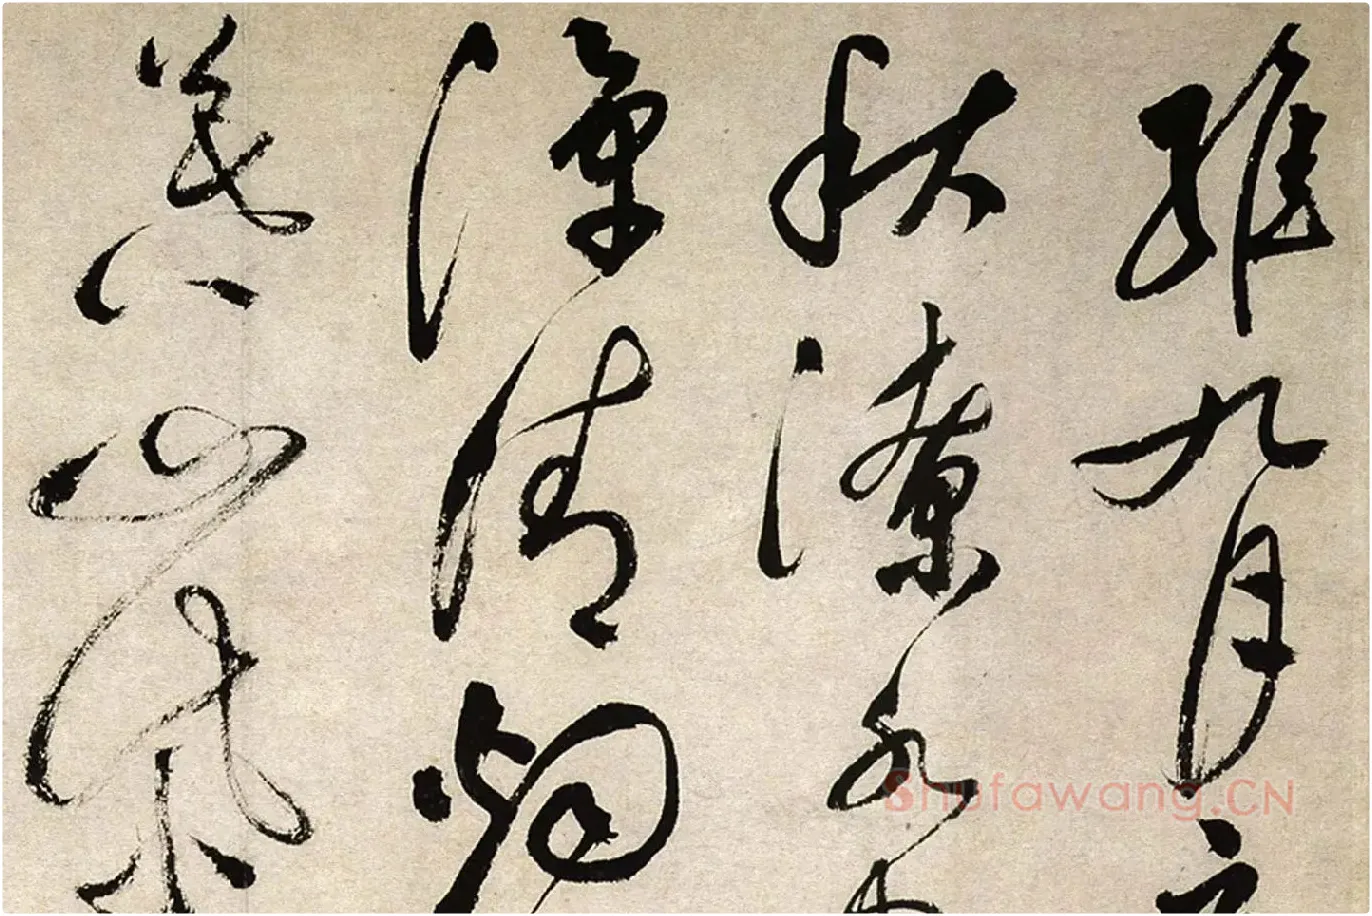 維九月
秋潦水
潭清烟
莫山紫
Shufawang.CN